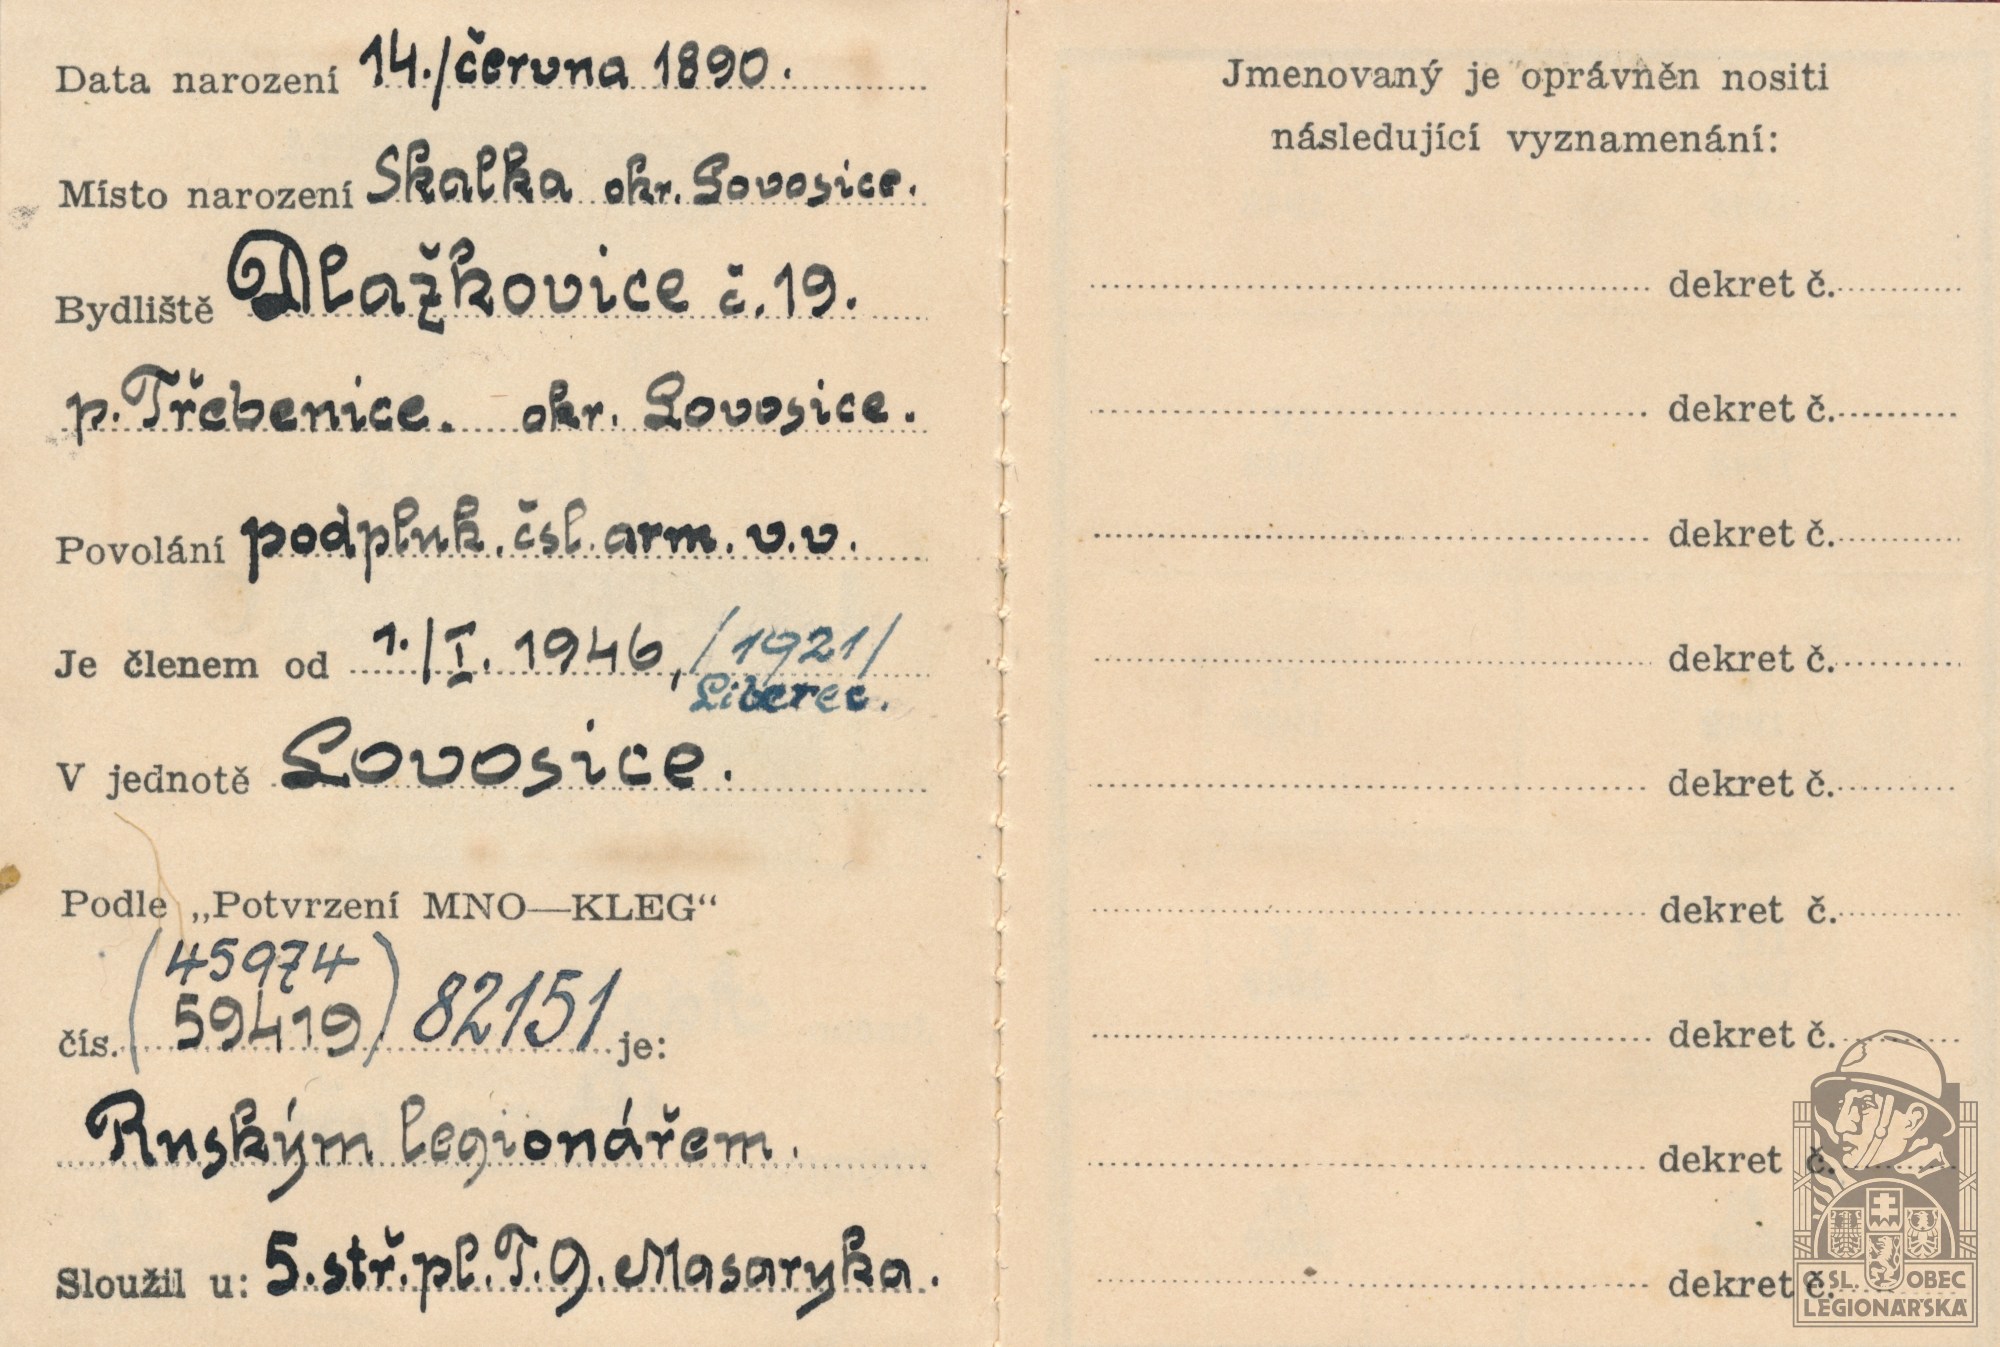 Data narození 14./června 1890.
Místo narození Skalka okr. Lovosice.
Bydliště Dlažkovice č. 19.
p. Třebenice. okr. Lovosice.
Povolání podpluk. čsl. arm. v.v.
Je členem od 1./I. 1946, /1921/
Liberec.
V jednotě Lovosice.
Podle „Potvrzení MNO—KLEG“
(45974
čís. 59419) 82151 je:
Ruským legionářem.
Sloužil u: 5. stř. pl. T. G. Masaryka.
Jmenovaný je oprávněn nositi
následující vyznamenání:
dekret č.
dekret č.
dekret č.
dekret č.
dekret č.
dekret č.
dekret č.
dekret č.
dekret č.
ČSL. OBEC
LEGIONÁŘSKÁ